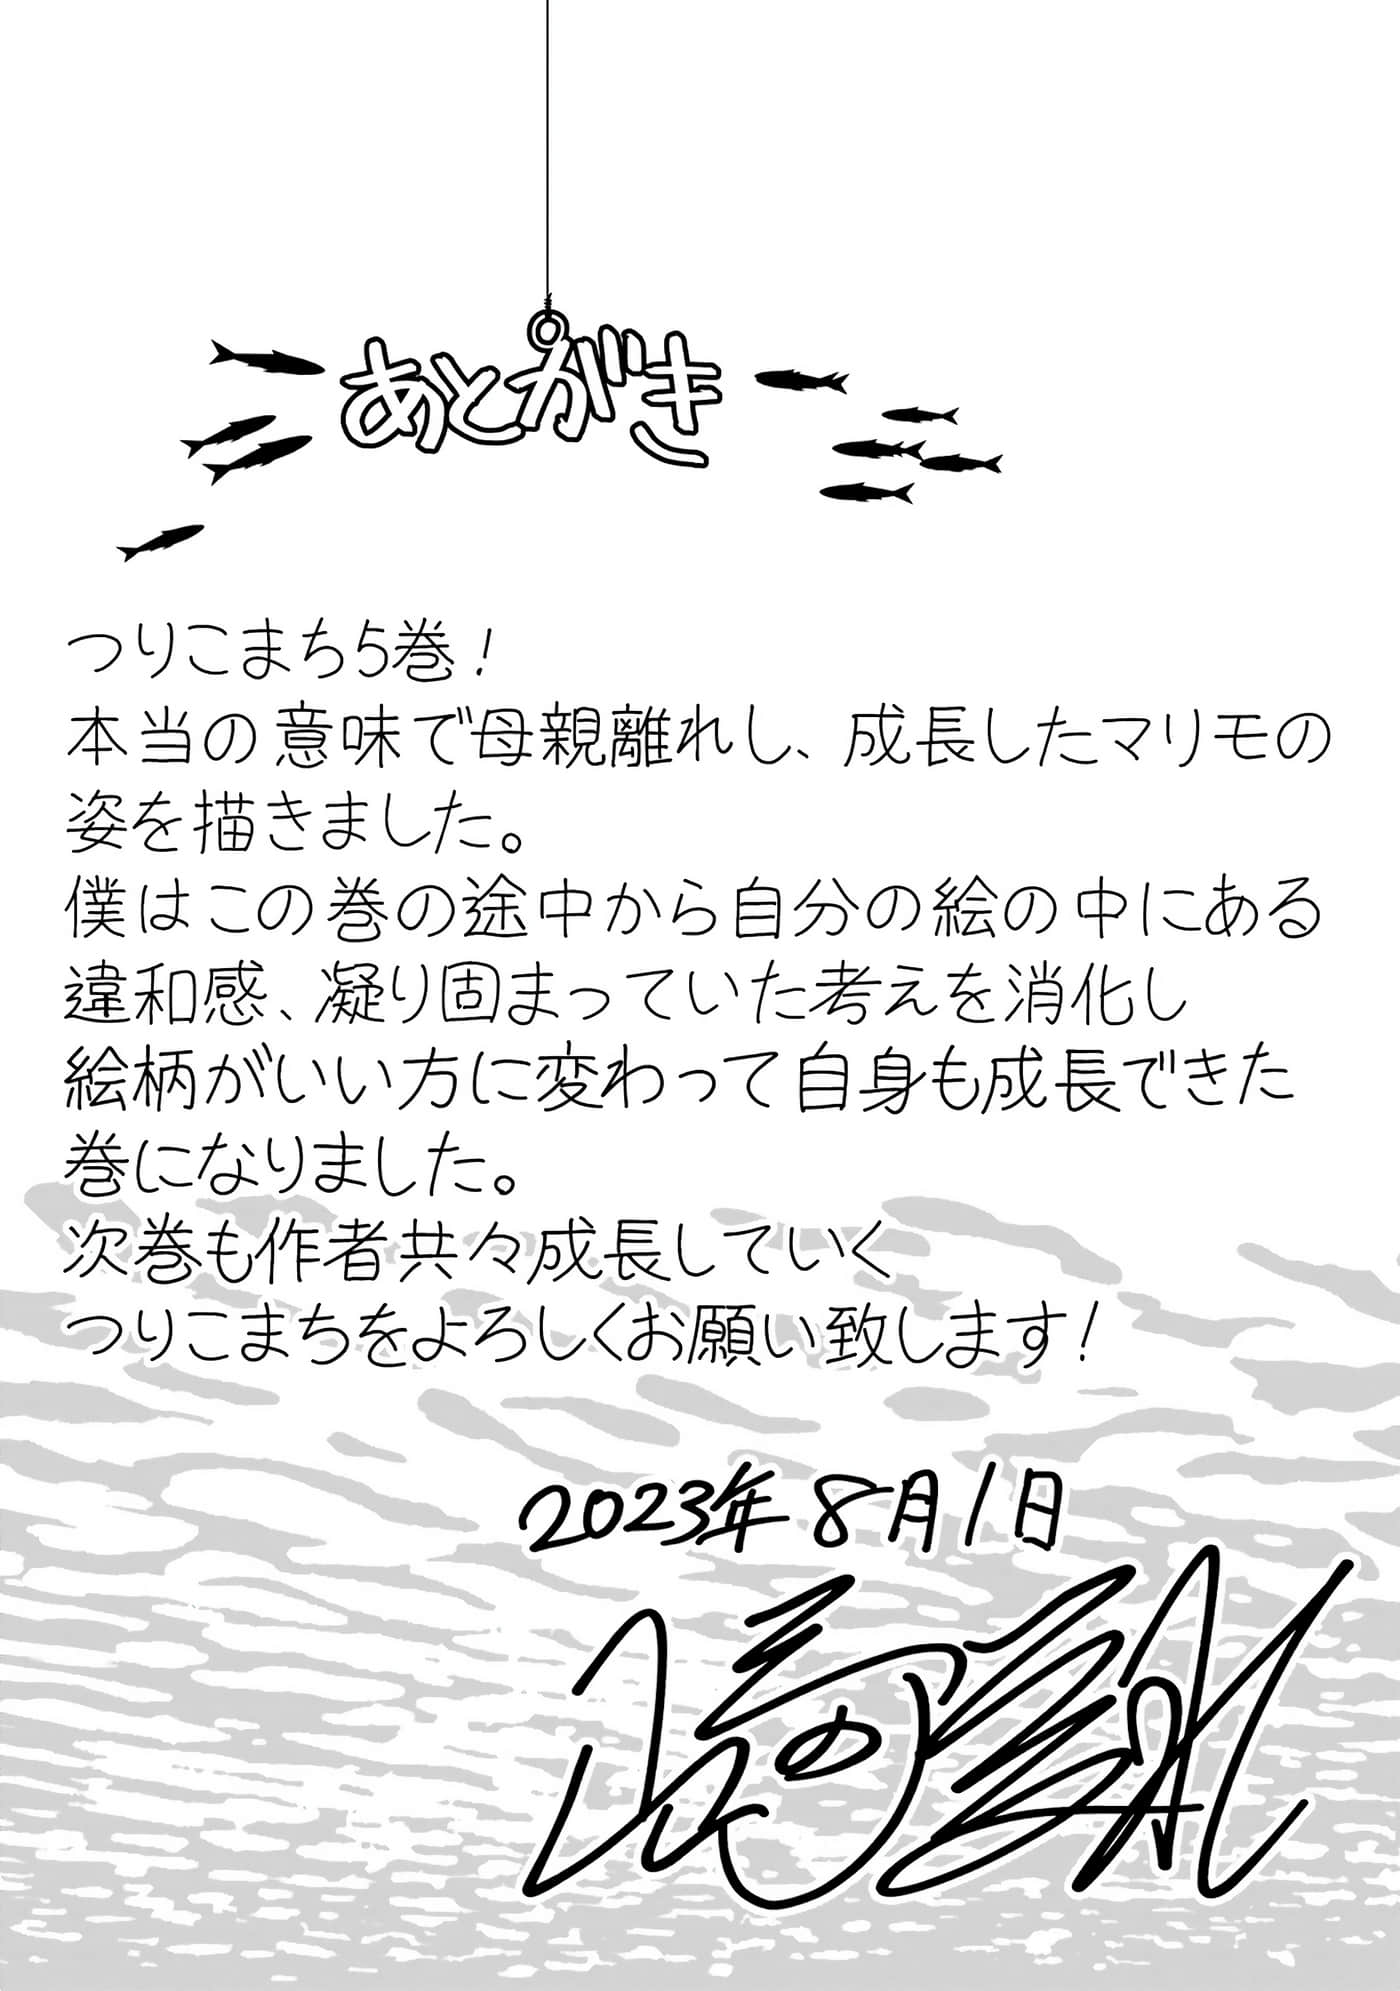 あとがき
つりこまち5巻!
本当の意味で母親離れし、成長したマリモの
姿を描きました。
僕はこの巻の途中から自分の絵の中にある
違和感、凝り固まっていた考えを消化し
絵柄がいい方に変わって自身も成長できた
巻になりました。
次巻も作者共々成長していく
つりこまちをよろしくお願い致します!
2023年8月1日